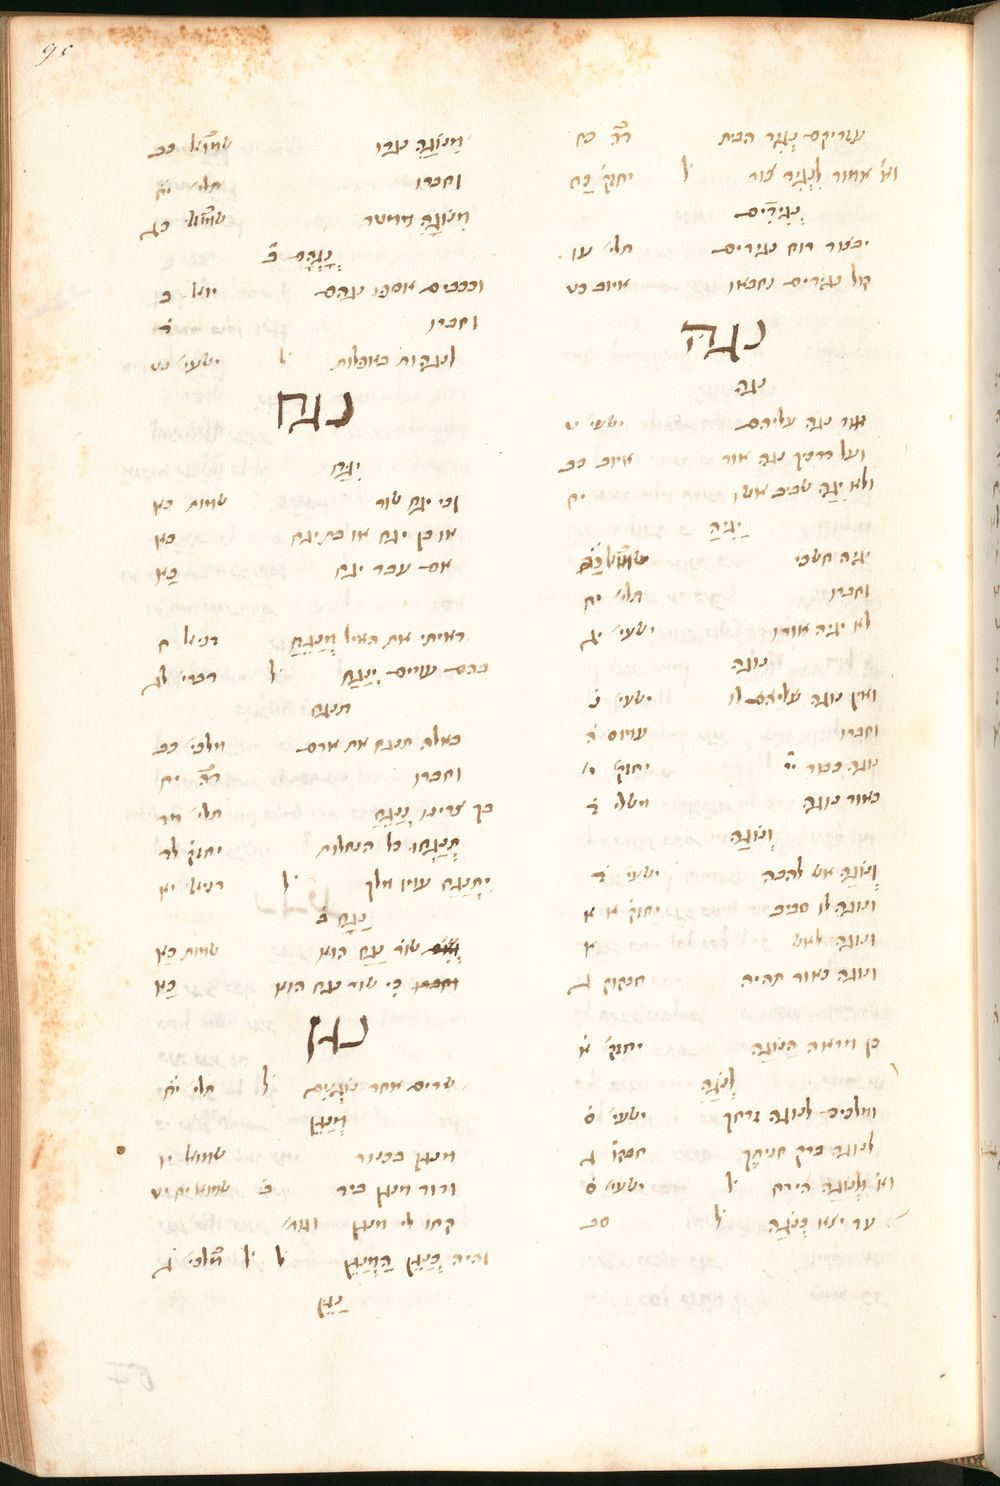 95
עזריקם נְגִיד הבית דה̇ כח
וא׳ אמור לִנְגִיד צור ל̇ יחזק׳ כח
נְגִידִים
יבצור רוח נגידים תלי׳ עו
קול נגידים נחבאו איוב כט
נגה
נגה
אור נגה עליהם ישעי׳ ט
ועל דרכיך נגה אור איוב כב
ולא יִגַּה שביב אשו יח
יַגִּיהַּ
יגיה חשכי
וחברו תלי׳ יח
לא יגיה אורו ישעי׳ יג
נוגה
ואין נוגה עליהם לו ישעי׳ נ̇
וחברו עמוס ה̇
נוגה כבוד יי̇ יחזק׳ י׳
כאור נוגה משלי ד̇
וְנוֹגַהּ
וְנוֹגַהּ אש להבה ישעי׳ ד̇
ונוגה לו סביב יחזק׳ א א
ונוגה לאש א
ונוגה כאור תהיה חבקוק ג
כן מראה הַנוֹגַהּ יחזק׳ א̇
לְנוֹגַהּ
ומלכים לנוגה זרחך ישעי׳ ס̇
לנוגה ברק חניתֶך חבקו̇ ג
וא׳ וּלְנוֹגַהּ הירח ל̇ ישעי׳ ס̇
עד יצא כַנוֹגַהּ ל̇ סב
מִנוֹגַהּ נגדו שמואל כב
וחברו תלי׳ יח̇
מִנוֹגַהּ ממטר שמואל כג
נָגְהָם ב̇
וככבים אספו נגהם יואל ב
וחברו ד̇
לנגהות באפלות ל̇ ישעי׳ נט
נגח
יִגַּח
וכי יגח שור שמות כא
או בן יגח או בת יגח כא
אם עבד יגח כא
ראיתי את האיל מְנַגֵּחַ דניאל ח
בהם עמים יְנַגַּח ל̇ דברי׳ לג
תנגח
באלה תנגח את ארם מלכי׳ כב
וחברו דה̇ יח
בך צרינו נְנַגֵּחַ תלי׳ מד
תְּנַגְּחוּ כל הנחלות יחזק̇ לד
יִתְנַגַּח עמו מלך ל̇ דניאל יא
נַגָּח ב̇
שור נַגָּח הוא שמות כא
כי שור נגח הוא כא
נגן
שרים אחר נוֹגְנִים ל̇ תלי׳ יח̇
מְנַגֵּן
מנגן בכנור שמואל יו
ודוד מנגן ביד ב̇ שמואל יח יט
קחו לי מנגן
והיה כְּנַגֵּן הַמְנַגֵּן ל̇ ל̇ מלכי׳ ג̇
נַגֵּן